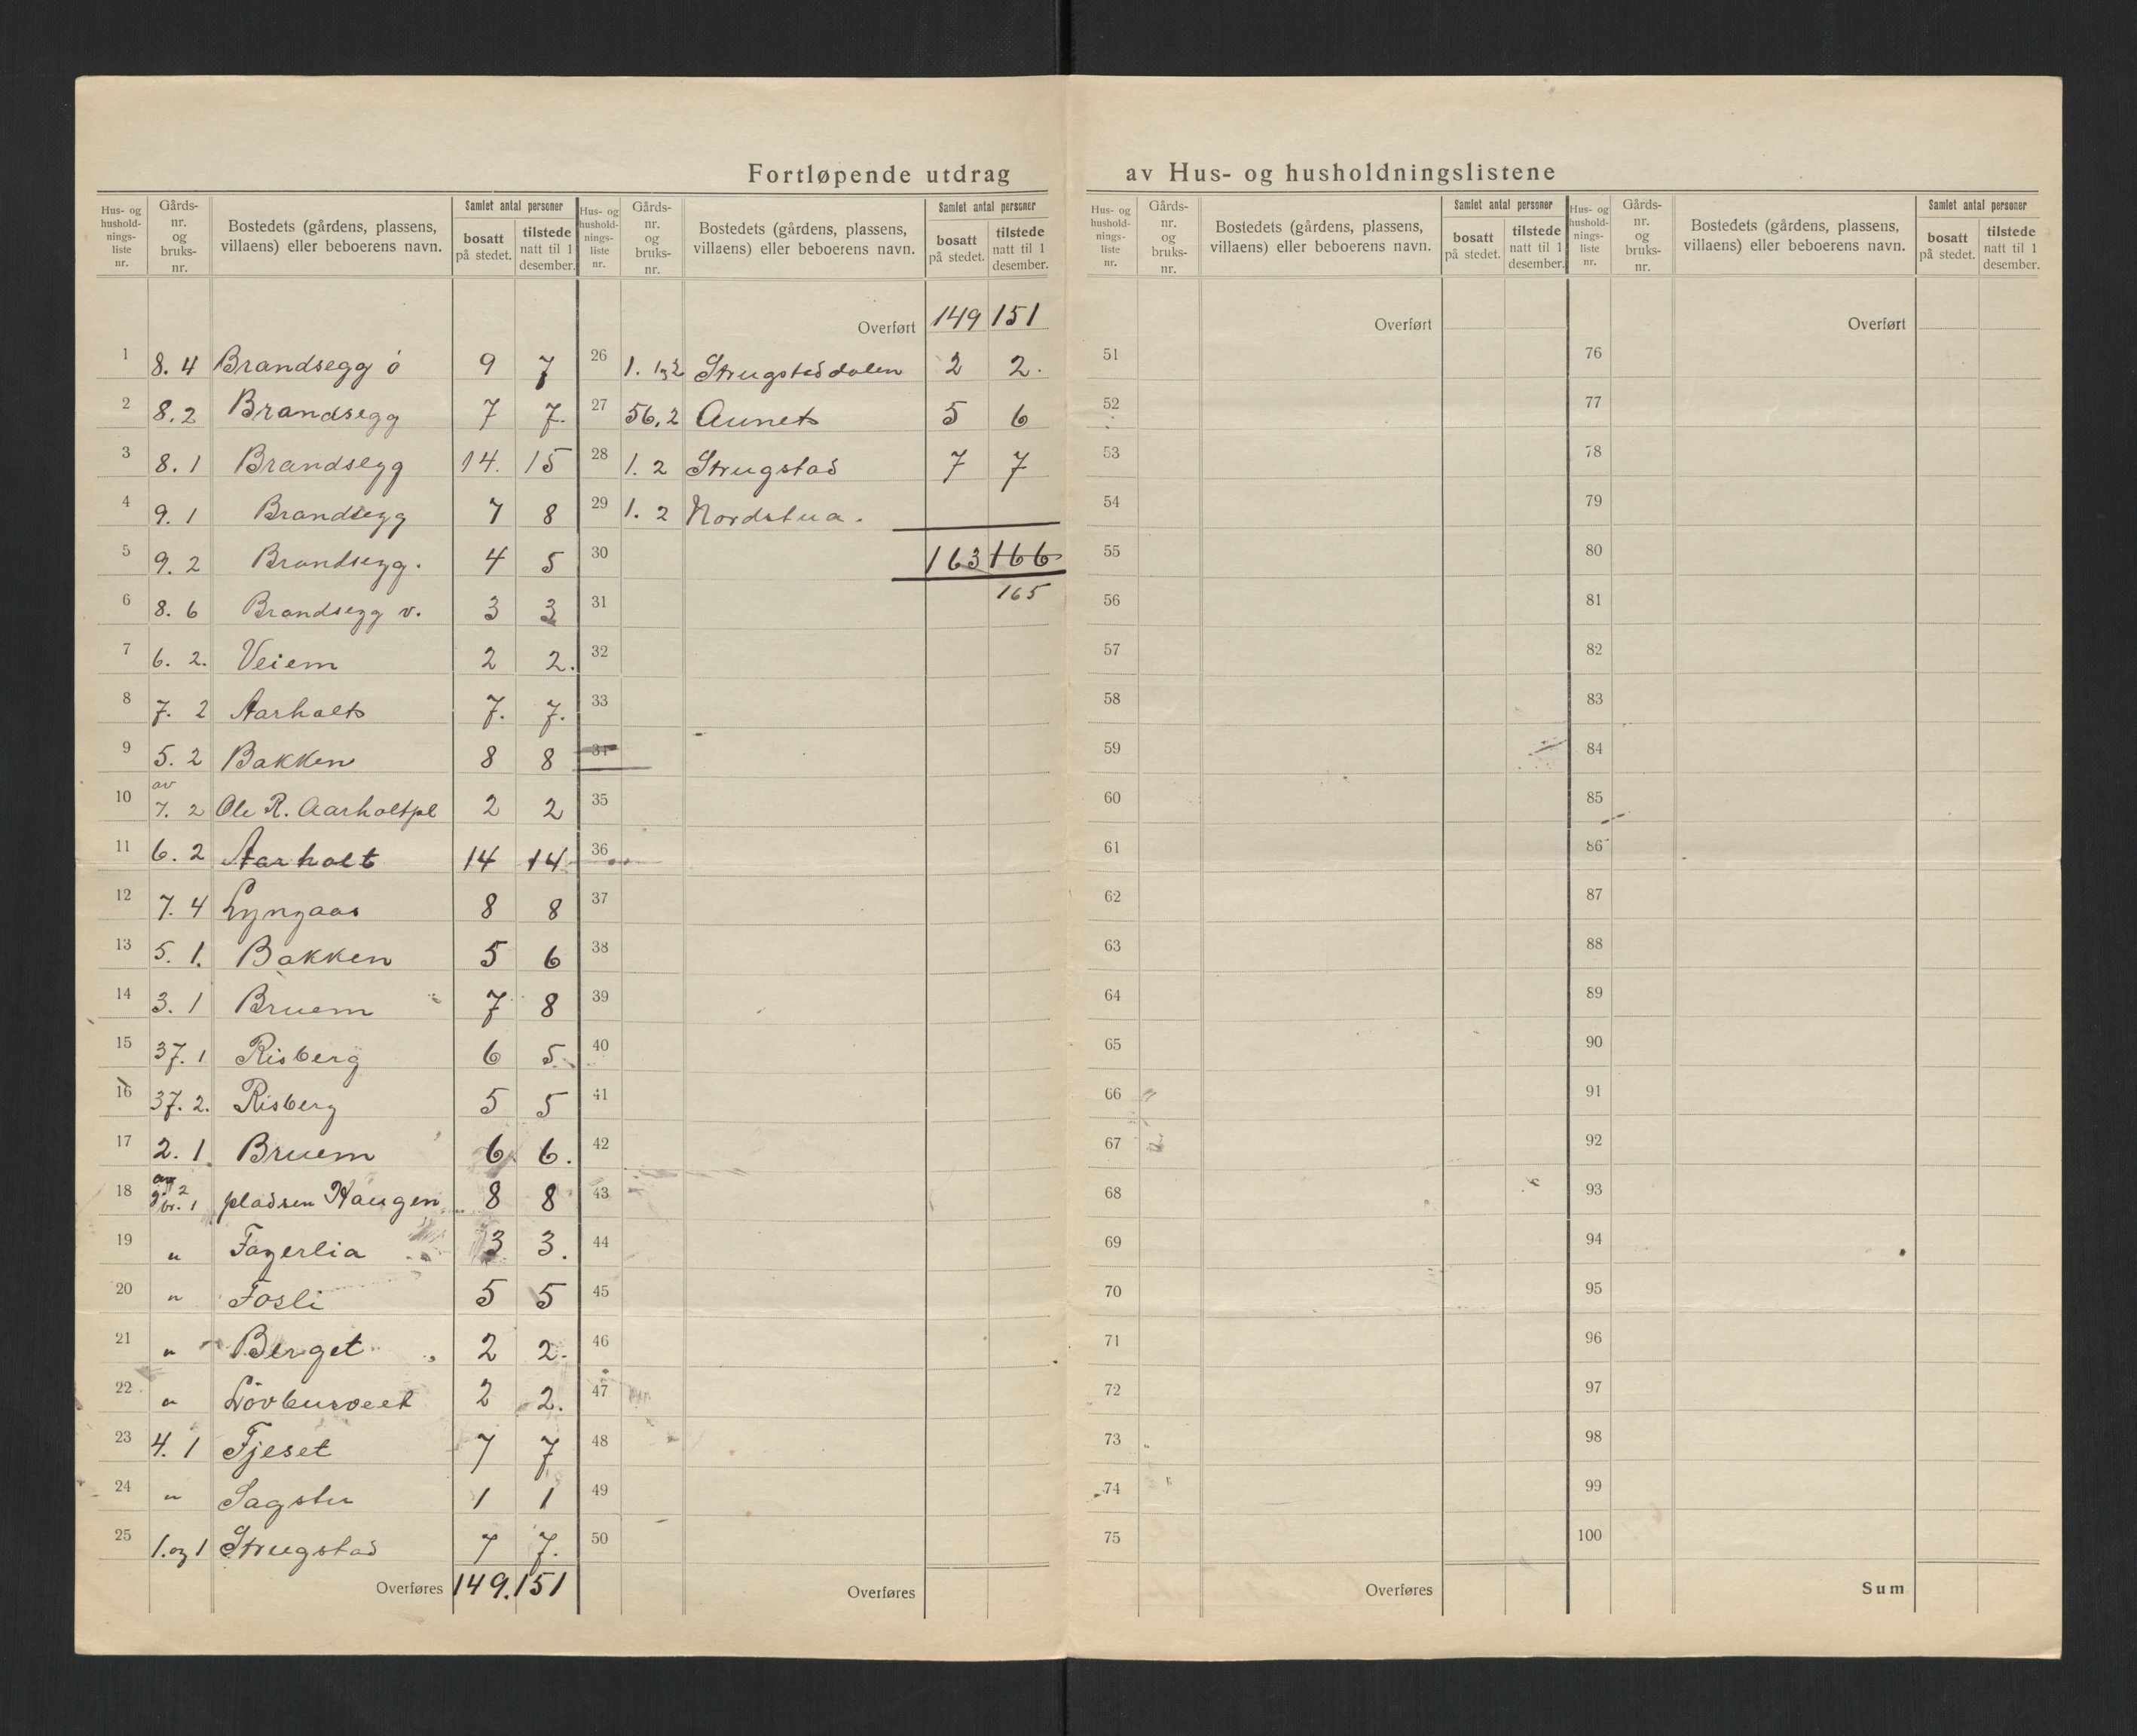 Fortløpende utdrag av Hus- og husholdningslistene
Hus- og hushold-nings-liste nr. Gårds-nr. og bruks-nr. Bostedets (gårdens, plassens, villaens) eller beboerens navn. Samlet antal personer bosatt på stedet. tilstede natt til 1 desember.
1 8. 4 Brandsegg ö 9 7
2 8. 2 Brandsegg 7 7.
3 8. 1 Brandsegg 14. 15
4 9. 1 Brandsegg 7 8
5 9. 2 Brandsegg. 4 5
6 8. 6 Brandsegg v. 3 3
7 6. 2. Veiem 2 2.
8 7. 2 Aarholt 7. 7.
9 5. 2 Bakken 8 8
10 av 7. 2 Ole R. Aarholtpl 2 2
11 6. 2 Aarholt 14 14
12 7. 4 Lyngaas 8 8
13 5. 1. Bakken 5 6
14 3. 1 Bruem 7 8
15 37. 1 Risberg 6 5
16 37. 2. Risberg 5 5
17 2. 1. Bruem 6 6.
18 g. 2 br. 1 pladsen Haugen 8 8
19 " Fagerlia 3 3.
20 " Fosli 5 5
21 " Berget 2 2.
22 " 2 2.
23 4. 1 Fjeset 7 7
24 " Sagstu 1 1
25 1. og 1 Strugstad 7 7.
Overføres 149. 151
Hus- og hushold-nings-liste nr. Gårds-nr. og bruks-nr. Bostedets (gårdens, plassens, villaens) eller beboerens navn. Samlet antal personer bosatt på stedet. tilstede natt til 1 desember.
Overført 149 151
26 1. 1 og 2 Strugstaddalen 2 2.
27 56. 2 Aunet 5 6
28 1. 2 Strugstad 7 7
29 1. 2 Nordstua.
30 163 166
31 165
32
33
34
35
36
37
38
39
40
41
42
43
44
45
46
47
48
49
50
Overføres
Hus- og hushold-nings-liste nr. Gårds-nr. og bruks-nr. Bostedets (gårdens, plassens, villaens) eller beboerens navn. Samlet antal personer bosatt på stedet. tilstede natt til 1 desember.
Overført
51
52
53
54
55
56
57
58
59
60
61
62
63
64
65
66
67
68
69
70
71
72
73
74
75
Overføres
Hus- og hushold-nings-liste nr. Gårds-nr. og bruks-nr. Bostedets (gårdens, plassens, villaens) eller beboerens navn. Samlet antal personer bosatt på stedet. tilstede natt til 1 desember.
Overført
76
77
78
79
80
81
82
83
84
85
86
87
88
89
90
91
92
93
94
95
96
97
98
99
100
Sum